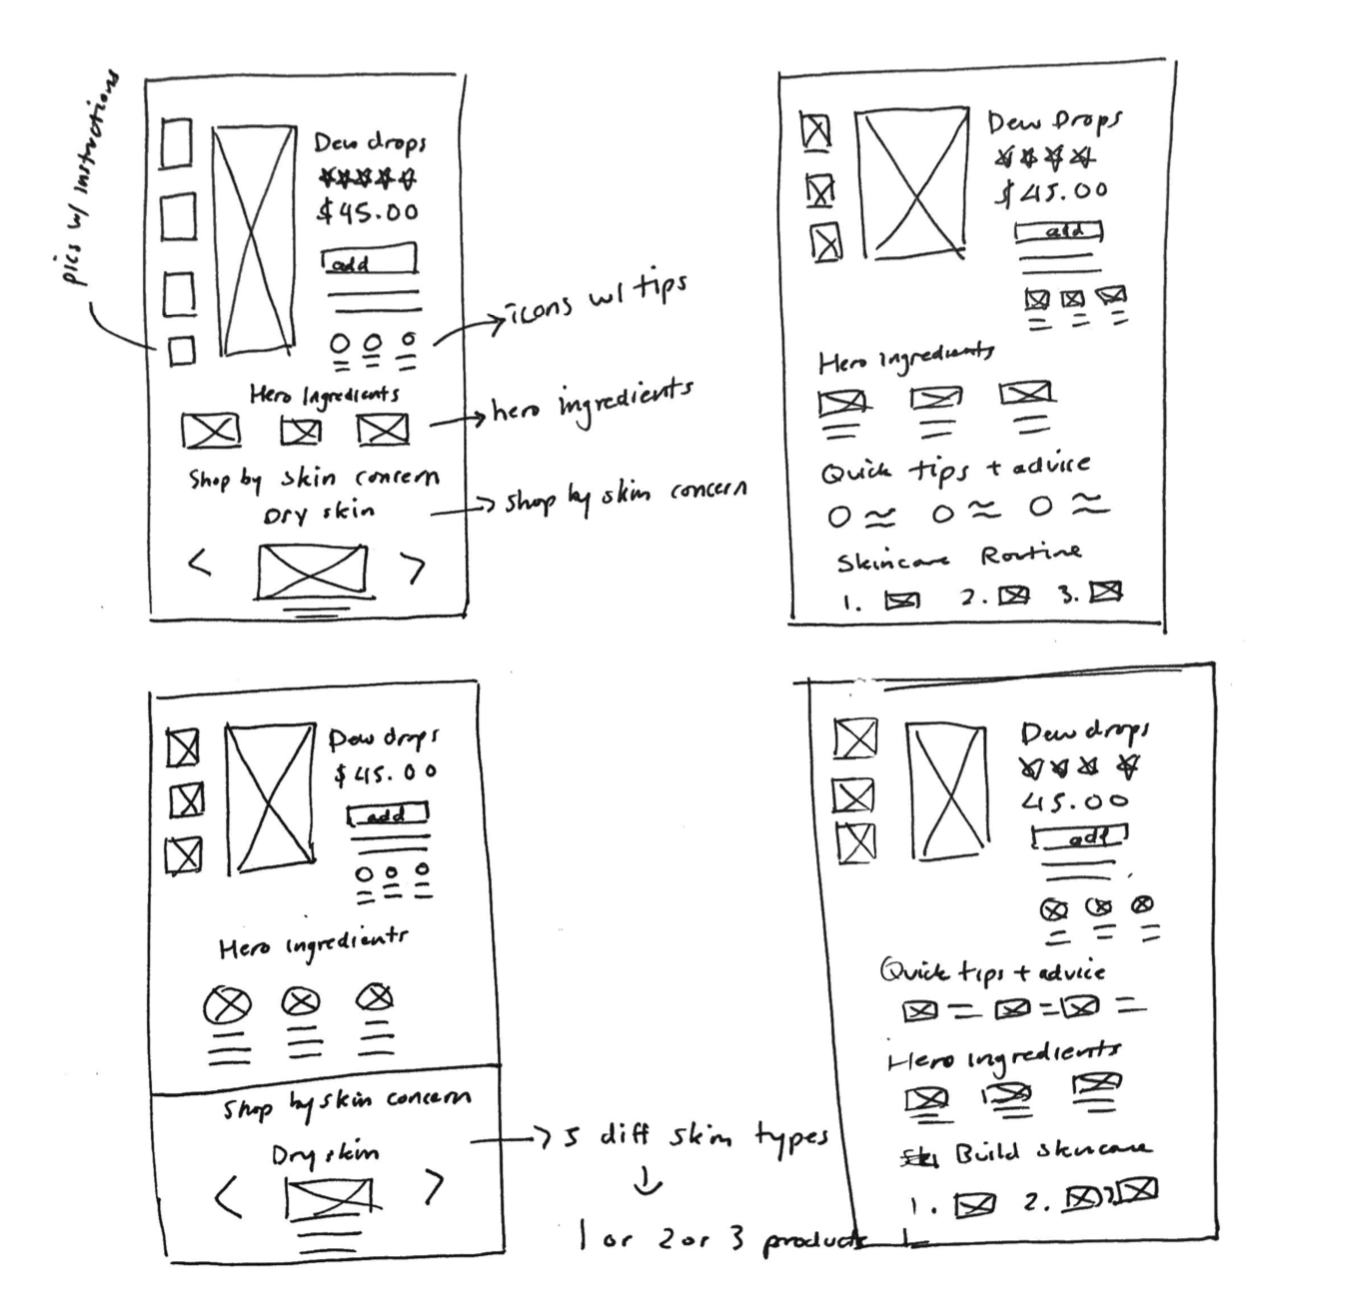 pics w/ instructions
Dew drops
$45.00
add
icons w/ tips
Hero Ingredients
hero ingredients
Shop by skin concern
Dry skin
shop by skin concern
< >
Dew Drops
$45.00
add
Hero ingredients
Quick tips + advice
Skincare Routine
1. 2. 3.
Dew drops
$45.00
add
Hero ingredients
Shop by skin concern
Dry skin
< >
5 diff skin types
1 or 2 or 3 products
Dew drops
45.00
add
Quick tips + advice
Hero ingredients
Build skincare
1. 2. 3